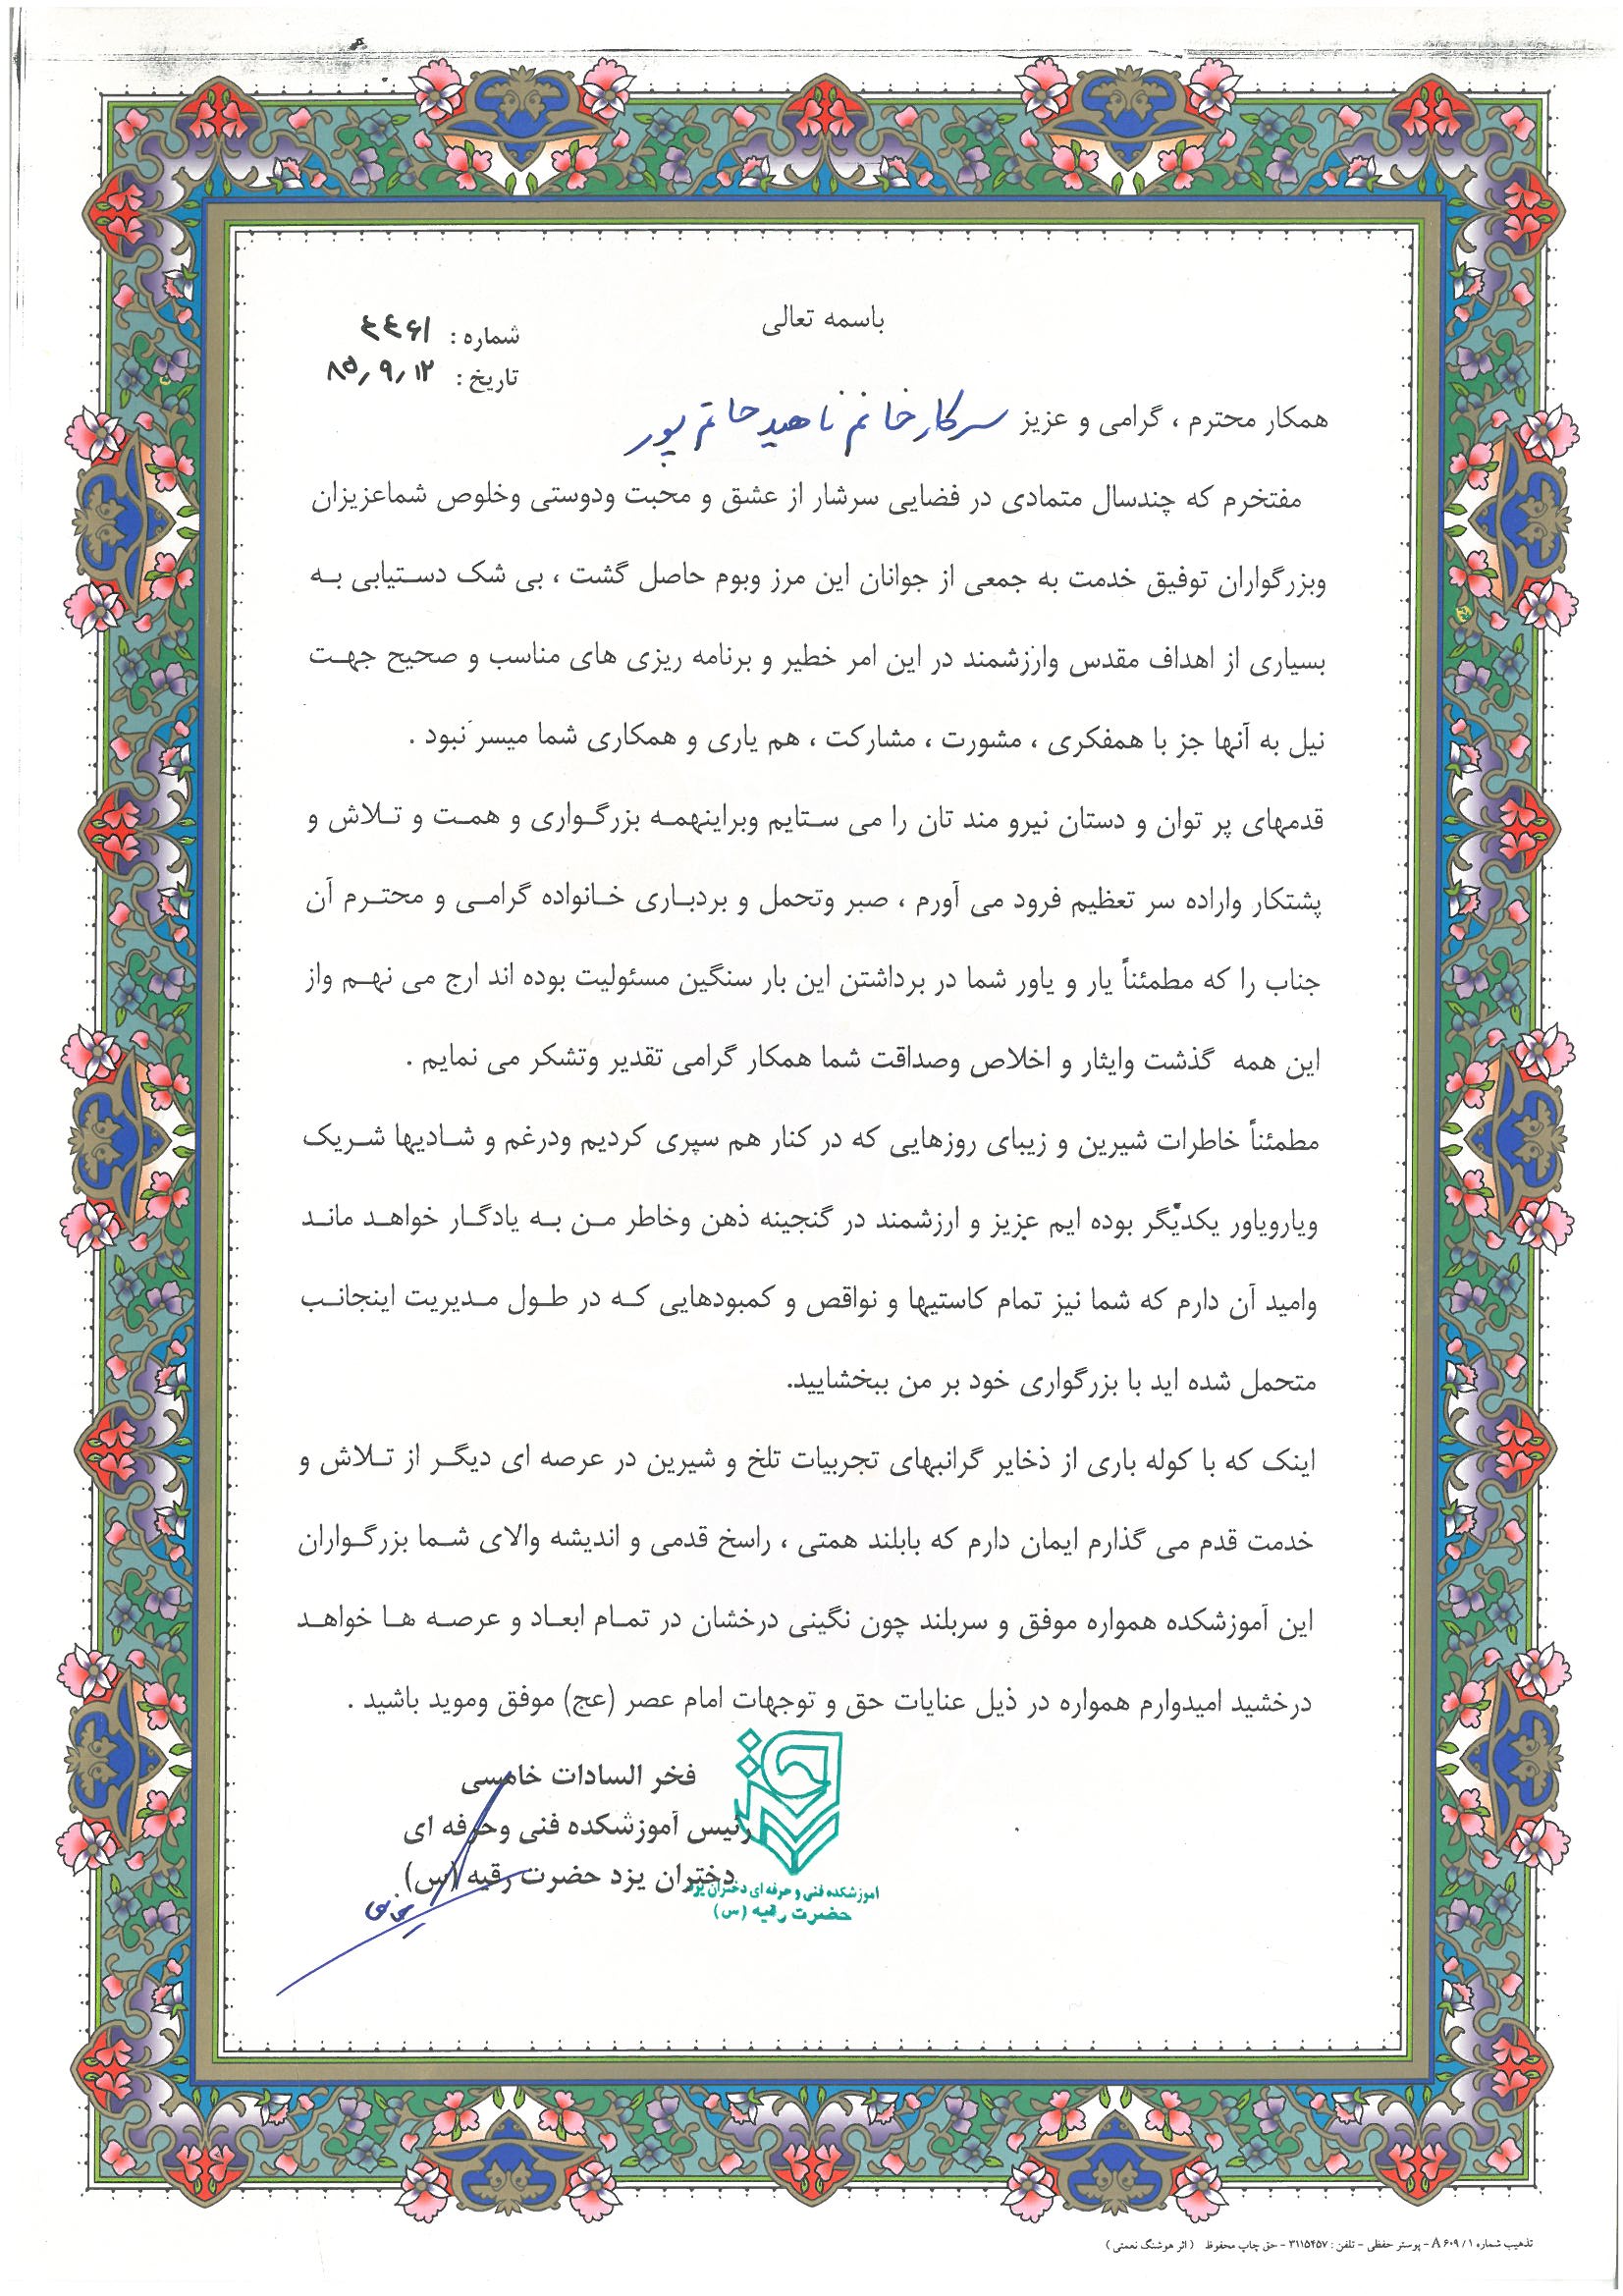 باسمه تعالی
شماره : ۴۴۶۱
تاریخ : ۸۵٫۹٫۱۲
همکار محترم ، گرامی و عزیز سرکار خانم ناهید حاتم پور
مفتخرم که چندسال متمادی در فضایی سرشار از عشق و محبت ودوستی وخلوص شماعزیزان
وبزرگواران توفیق خدمت به جمعی از جوانان این مرز وبوم حاصل گشت ، بی شک دستیابی به
بسیاری از اهداف مقدس وارزشمند در این امر خطیر و برنامه ریزی های مناسب و صحیح جهت
نیل به آنها جز با همفکری ، مشورت ، مشارکت ، هم یاری و همکاری شما میسر نبود .
قدمهای پر توان و دستان نیرو مند تان را می ستایم وبراینهمه بزرگواری و همت و تلاش و
پشتکار واراده سر تعظیم فرود می آورم ، صبر وتحمل و بردباری خانواده گرامی و محترم آن
جناب را که مطمئناً یار و یاور شما در برداشتن این بار سنگین مسئولیت بوده اند ارج می نهم واز
این همه گذشت وایثار و اخلاص وصداقت شما همکار گرامی تقدیر وتشکر می نمایم .
مطمئناً خاطرات شیرین و زیبای روزهایی که در کنار هم سپری کردیم ودرغم و شادیها شریک
ویارویاور یکدیگر بوده ایم عزیز و ارزشمند در گنجینه ذهن وخاطر من به یادگار خواهد ماند
وامید آن دارم که شما نیز تمام کاستیها و نواقص و کمبودهایی که در طول مدیریت اینجانب
متحمل شده اید با بزرگواری خود بر من ببخشایید.
اینک که با کوله باری از ذخایر گرانبهای تجربیات تلخ و شیرین در عرصه ای دیگر از تلاش و
خدمت قدم می گذارم ایمان دارم که بابلند همتی ، راسخ قدمی و اندیشه والای شما بزرگواران
این آموزشکده همواره موفق و سربلند چون نگینی درخشان در تمام ابعاد و عرصه ها خواهد
درخشید امیدوارم همواره در ذیل عنایات حق و توجهات امام عصر (عج) موفق وموید باشید .
فخر السادات خامسی
رئیس آموزشکده فنی وحرفه ای
دختران یزد حضرت رقیه (س)
آموزشکده فنی و حرفه ای دختران یزد
حضرت رقیه (س)
تذهیب شماره ۱ / ۶۰۹ A - پوستر حفظی - تلفن : ۳۱۱۵۴۵۷ - حق چاپ محفوظ ( اثر هوشنگ نعمتی )